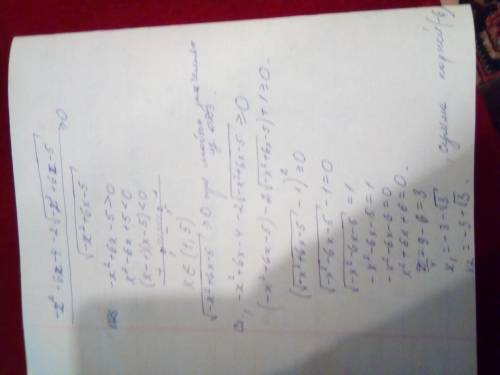 -x²+6x-4-2√-x²+6x-5 / √-x²+6x-5 ≥0
-x²+6x-5>0
x²-6x+5<0
(x-1)(x-5)<0
x∈(1;5)
√-x²+6x-5 >0 при любом
-x²+6x-4-2√-x²+6x-5 ≥0
(-x²+6x-5)-2√-x²+6x-5+1≥0.
(√-x²+6x-5-1)²≥0
√-x²-6x-5-1=0
√-x²-6x-5=1
-x²-6x-5=1
-x²-6x-6=0
x²+6x+6=0.
=9-6=3
x₁=-3-√3
x₂=-3+√3
корней